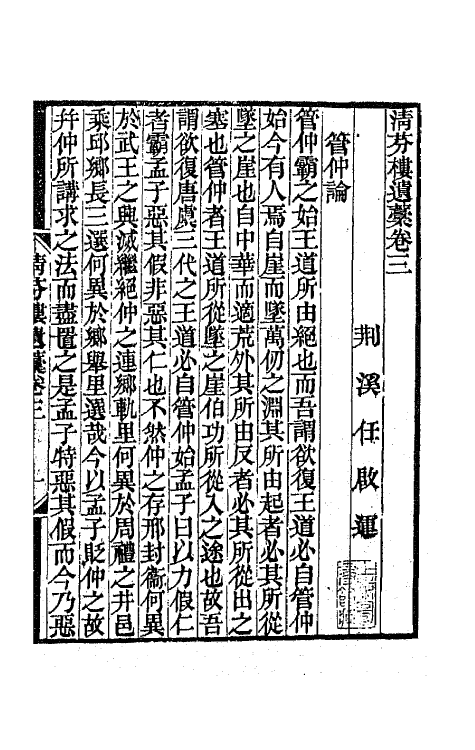 清芬樓遺藳卷三
荆溪任啟運
管仲論
管仲霸之始王道所由絕也而吾謂欲復王道必自管仲
始今有人焉自崖而墜萬仞之淵其所由起者必其所從
墜之崖也自中華而適荒外其所由反者必其所從出之
塞也管仲者王道所從墜之崖伯功所從入之途也故吾
謂欲復唐虞三代之王道必自管仲始孟子曰以力假仁
者霸孟子惡其假非惡其仁也不然仲之存邢封衞何異
於武王之興滅繼絕仲之連鄉軌里何異於周禮之井邑
乘邱鄉長三選何異於鄉舉里選哉今以孟子貶仲之故
幷仲所講求之法而盡置之是孟子特惡其假而今乃惡
清芬樓遺藳卷三 一